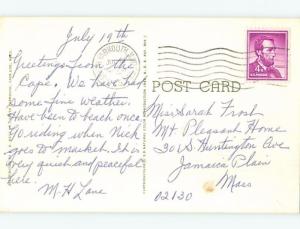 July 19th
Greetings from the
Cape. We have had
some fine weather.
Have been to beach once.
Go riding when Nick
goes to market. It is
very quiet and peaceful
here.
M. H Lane
POST CARD
Miss Sarah Frost
Mt Pleasant Home
301 S Huntington Ave
Jamaica Plain
Mass
02130
4¢